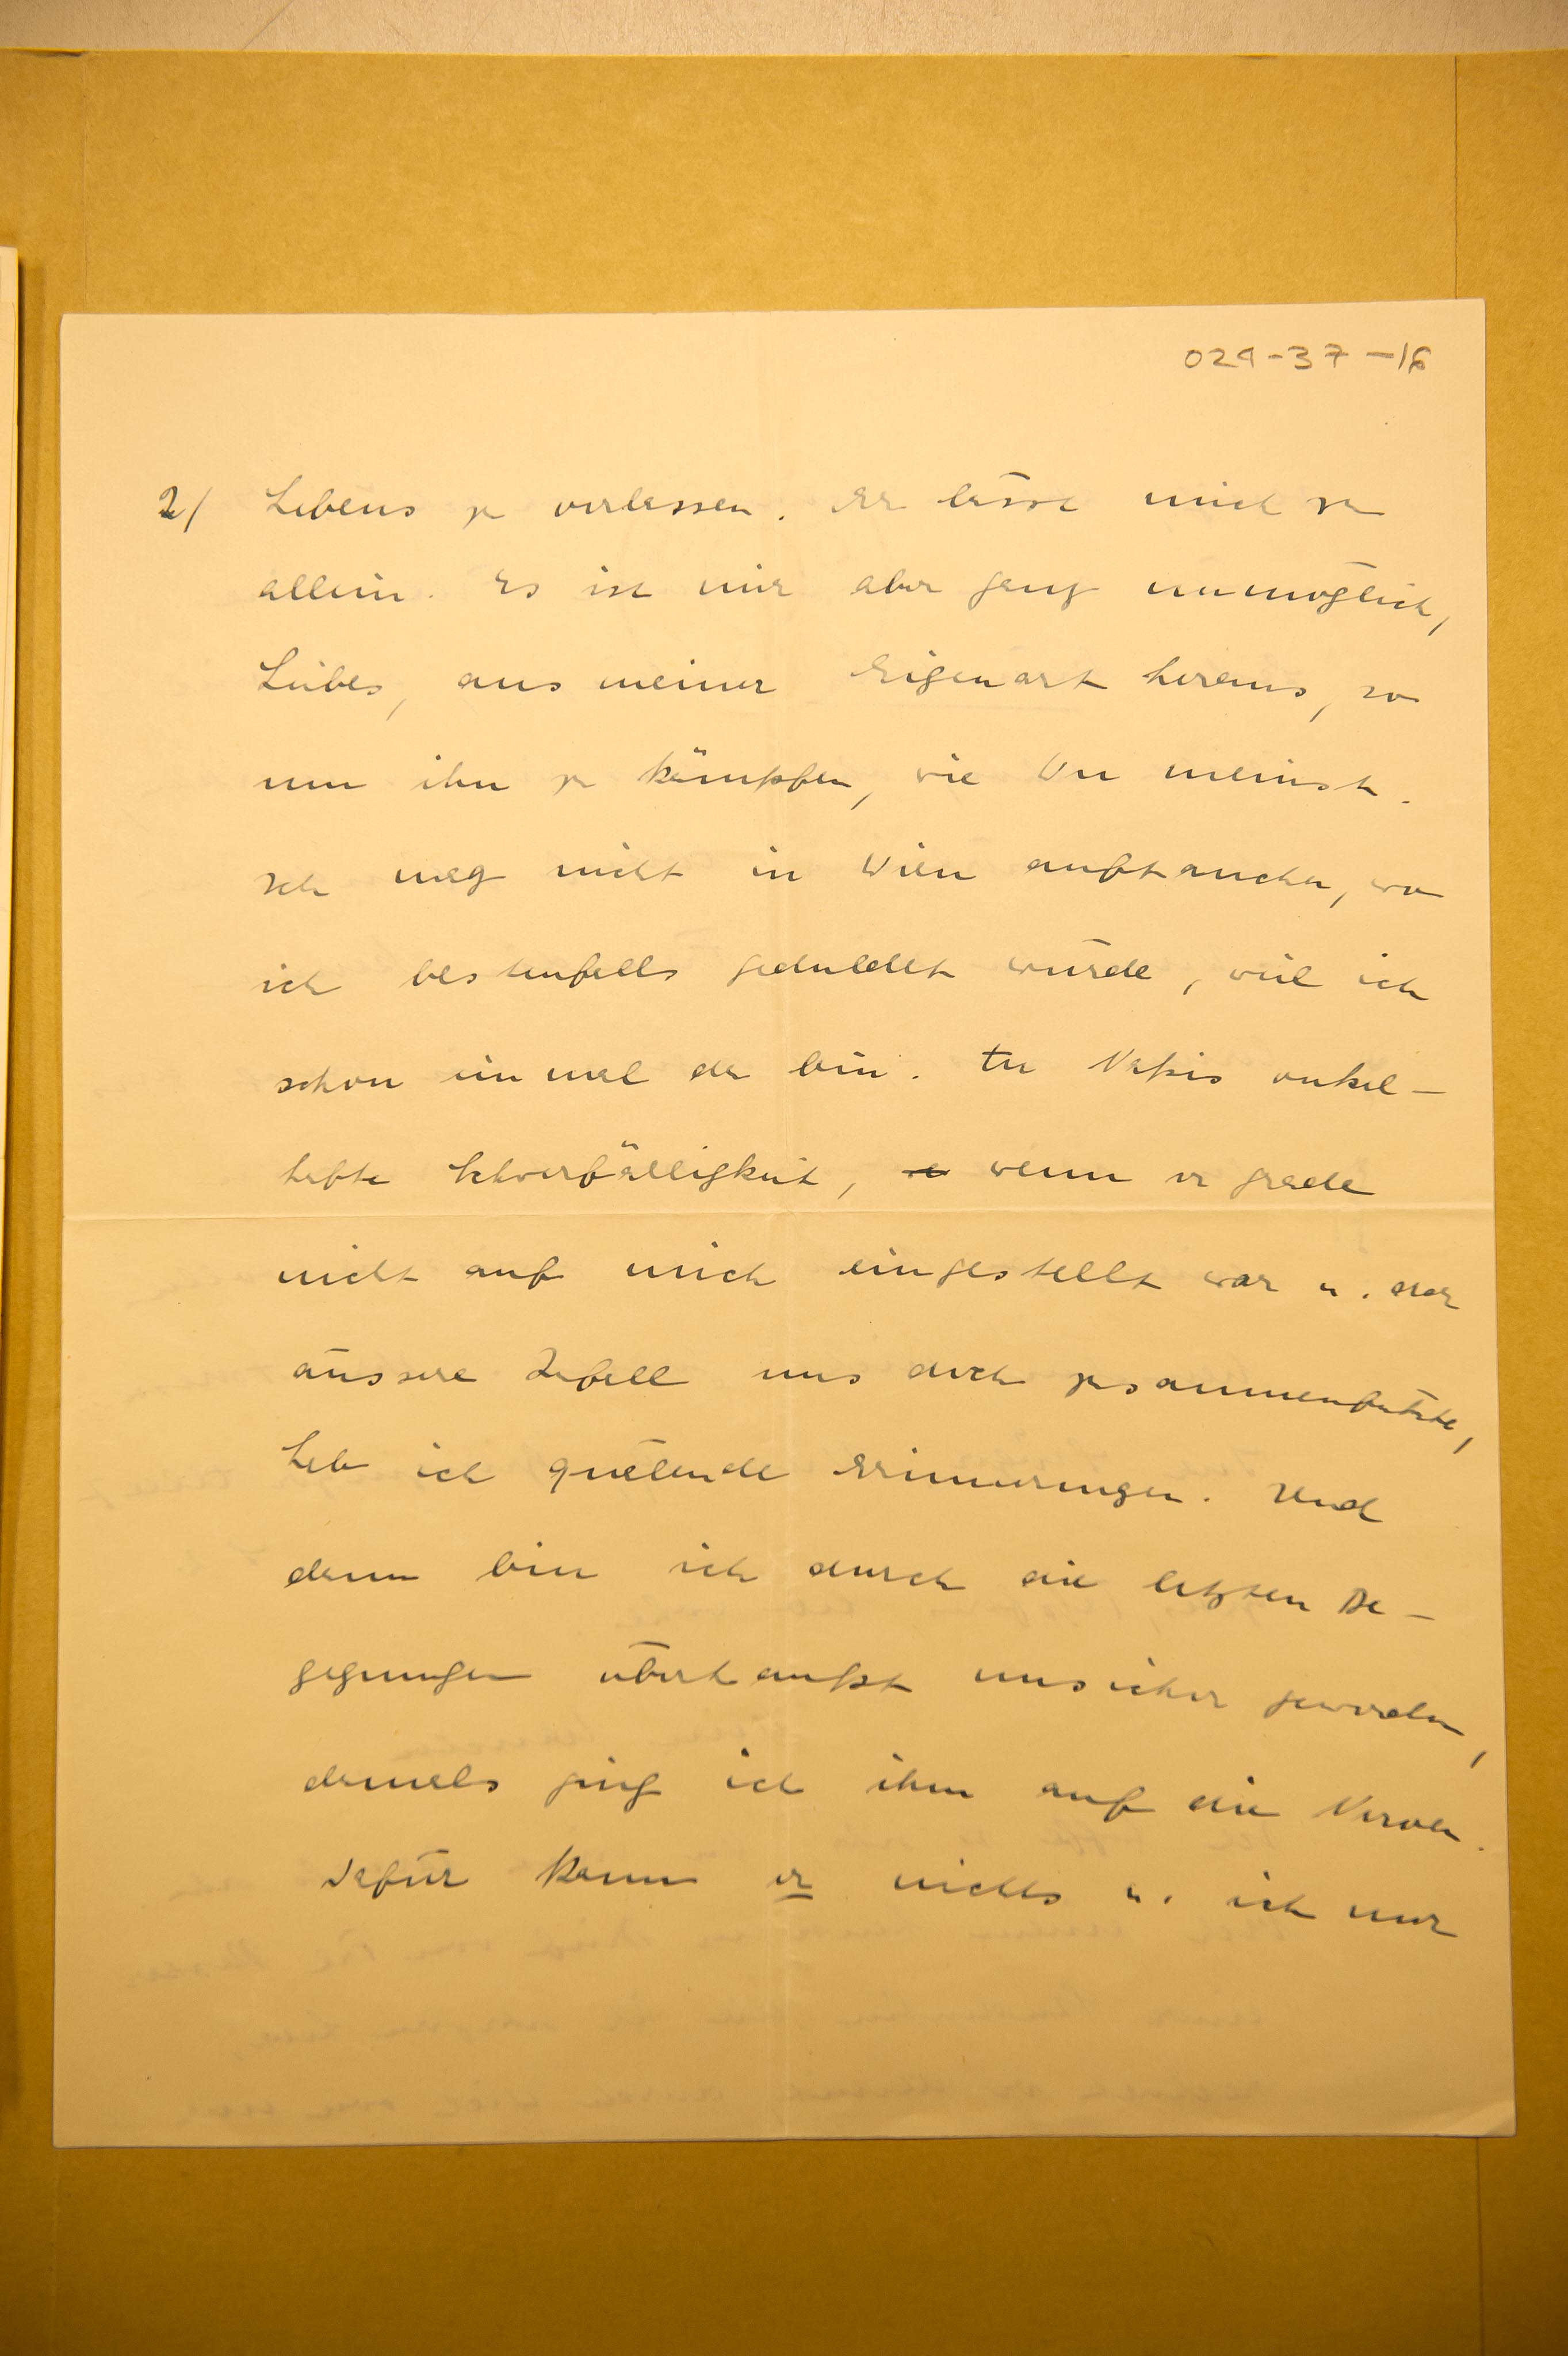 029-37-16
2/ Lebens zu verlassen. Er lässt mich zu
allein. Es ist mir aber ganz unmöglich,
Liebes, aus meiner Eigenart heraus, so
um ihn zu kämpfen, wie Du meinst.
Ich mag nicht in Wien auftauchen, wo
ich bestenfalls geduldet würde, weil ich
schon einmal da bin. An onkel-
hafte Schwerfälligkeit, wenn er grade
nicht auf mich eingestellt war u. der
äussere Zufall uns doch zusammenführte,
hab ich quälende Erinnerungen. Und
dann bin ich durch die letzten Be-
gegnungen überhaupt unsicher geworden,
damals ging ich ihm auf die Nerven.
Dafür kann er nichts u. ich nur